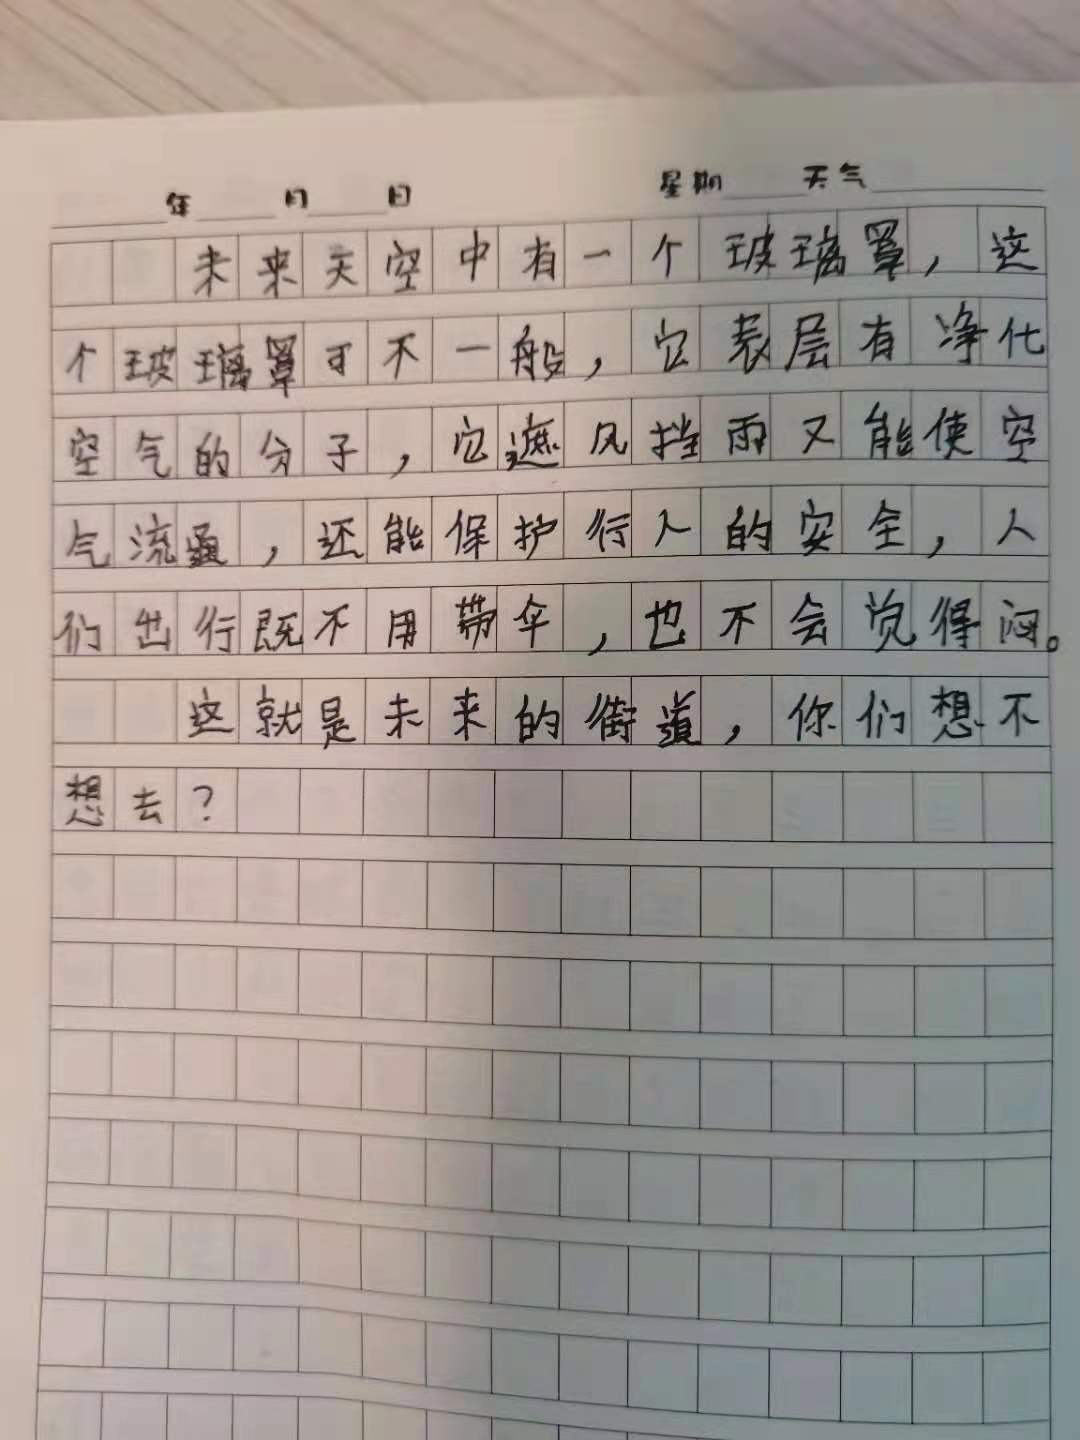 年 月 日 星期 天气
未来天空中有一个玻璃罩，这
个玻璃罩可不一般，它表层有净化
空气的分子，它遮风挡雨又能使空
气流通，还能保护行人的安全，人
们出行既不用带伞，也不会觉得闷。
这就是未来的街道，你们想不
想去？